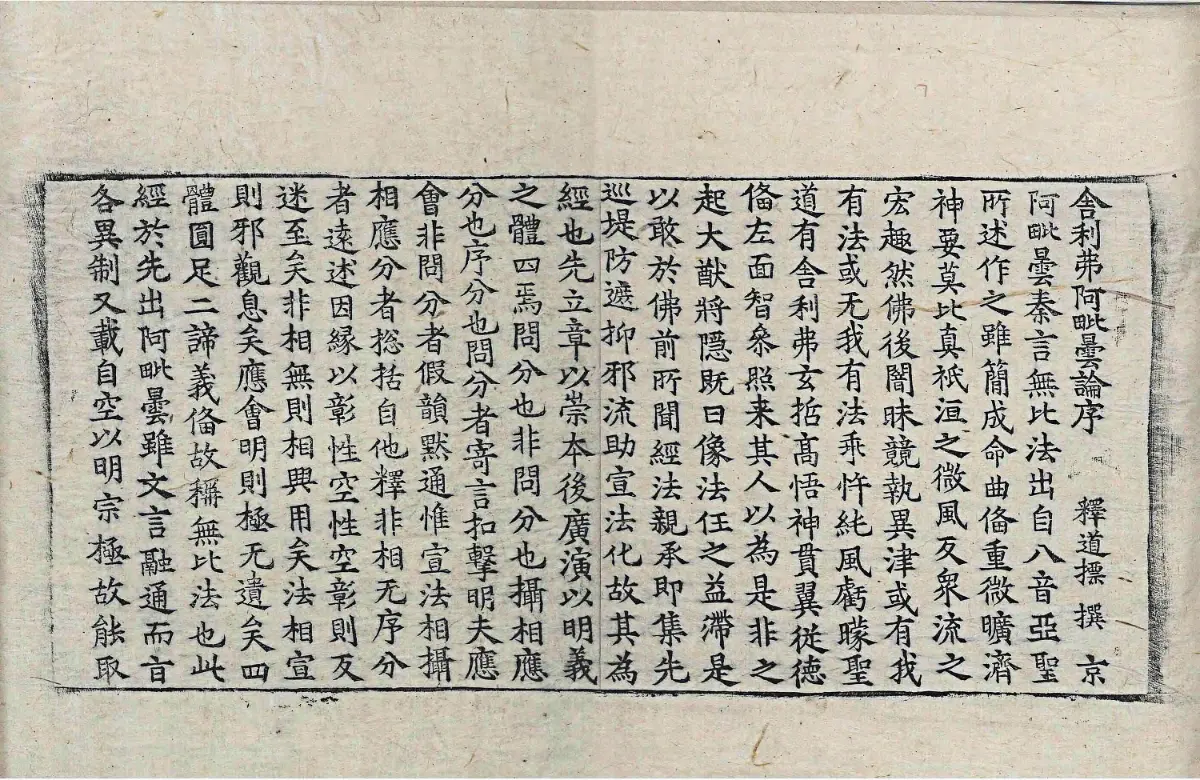 舎利弗阿毗曇論序 釋道摽 撰 京
阿毗曇秦言無比法出自八音亞聖
所述作之雖簡成命曲俻重微曠濟
神要莫比真祇洹之微風反衆流之
宏趣然佛後闇昧競執異津或有我
有法或无我有法乖忤純風虧曚聖
道有舎利弗玄哲髙悟神貫翼従德
俻左面智叅照来其人以為是非之
起大猷將隱既曰像法任之益滯是
以敢於佛前所聞經法親承即集先
巡堤防遮抑邪流助宣法化故其為
經也先立章以崇本後廣演以明義
之體四焉問分也非問分也攝相應
分也序分也問分者寄言扣擊明夫應
會非問分者假韻黙通惟宣法相攝
相應分者揔括自他釋非相无序分
者遠述因縁以彰性空性空彰則反
迷至矣非相無則相興用矣法相宣
則邪觀息矣應會明則極无遺矣四
體圓足二諦義俻故稱無比法也此
經於先出阿毗曇雖文言融通而旨
各異制又載自空以明宗極故能取